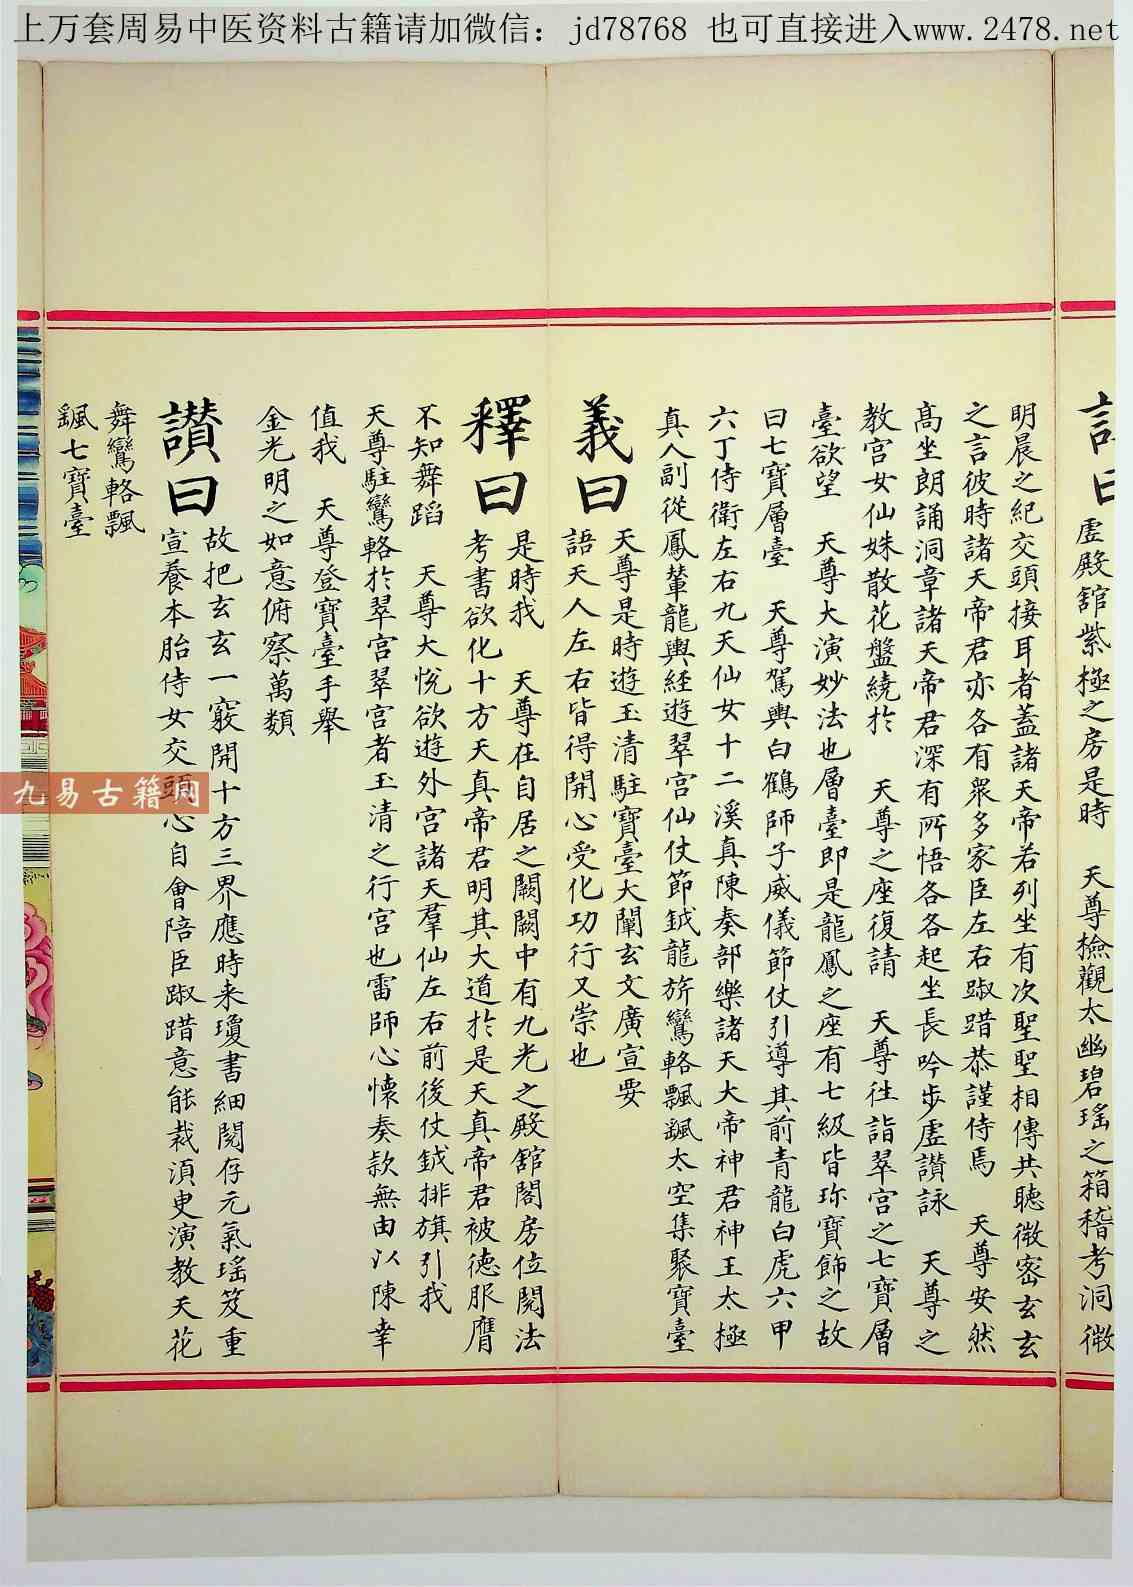 上万套周易中医资料古籍请加微信：jd78768 也可直接进入www.2478.net
虛殿舘紫極之房是時　天尊檢觀太幽碧瑤之箱稽考洞微
明晨之紀交頭接耳者蓋諸天帝君列坐有次聖聖相傳共聽微密玄玄
之言彼時諸天帝君亦各有衆多家臣左右踧踖恭謹侍焉　天尊安然
高坐朗誦洞章諸天帝君深有所悟各各起坐長吟步虛讚詠　天尊之
教宮女仙姝散花盤繞於　天尊之座復請　天尊往詣翠宮之七寶層
臺欲望　天尊大演妙法也層臺即是龍鳳之座有七級皆珎寶飾之故
曰七寶層臺　天尊駕輿白鶴師子威儀節仗引導其前青龍白虎六甲
六丁侍衛左右九天仙女十二溪真陳奏部樂諸天大帝神君神王太極
真人副從鳳輦龍輿経遊翠宮仙仗節鉞龍旂鸞輅飄飄太空集聚寶臺
義曰
天尊是時遊玉清駐寶臺大闡玄文廣宣要
語天人左右皆得開心受化功行又崇也
釋曰
是時我　天尊在自居之闕闕中有九光之殿舘閣房位閱法
考書欲化十方天真帝君明其大道於是天真帝君被德服膺
不知舞蹈　天尊大悅欲遊外宮諸天羣仙左右前後仗鉞排旗引我
天尊駐鸞輅於翠宮翠宮者玉清之行宮也雷師心懷奏款無由以陳幸
值我　天尊登寶臺手舉
金光明之如意俯察萬類
讚曰
故把玄玄一竅開十方三界應時来瓊書細閱存元氣瑤笈重
宣養本胎侍女交頭心自會陪臣踧踖意能裁湏臾演教天花
舞鸞輅飄
颻七寶臺
九易古籍网